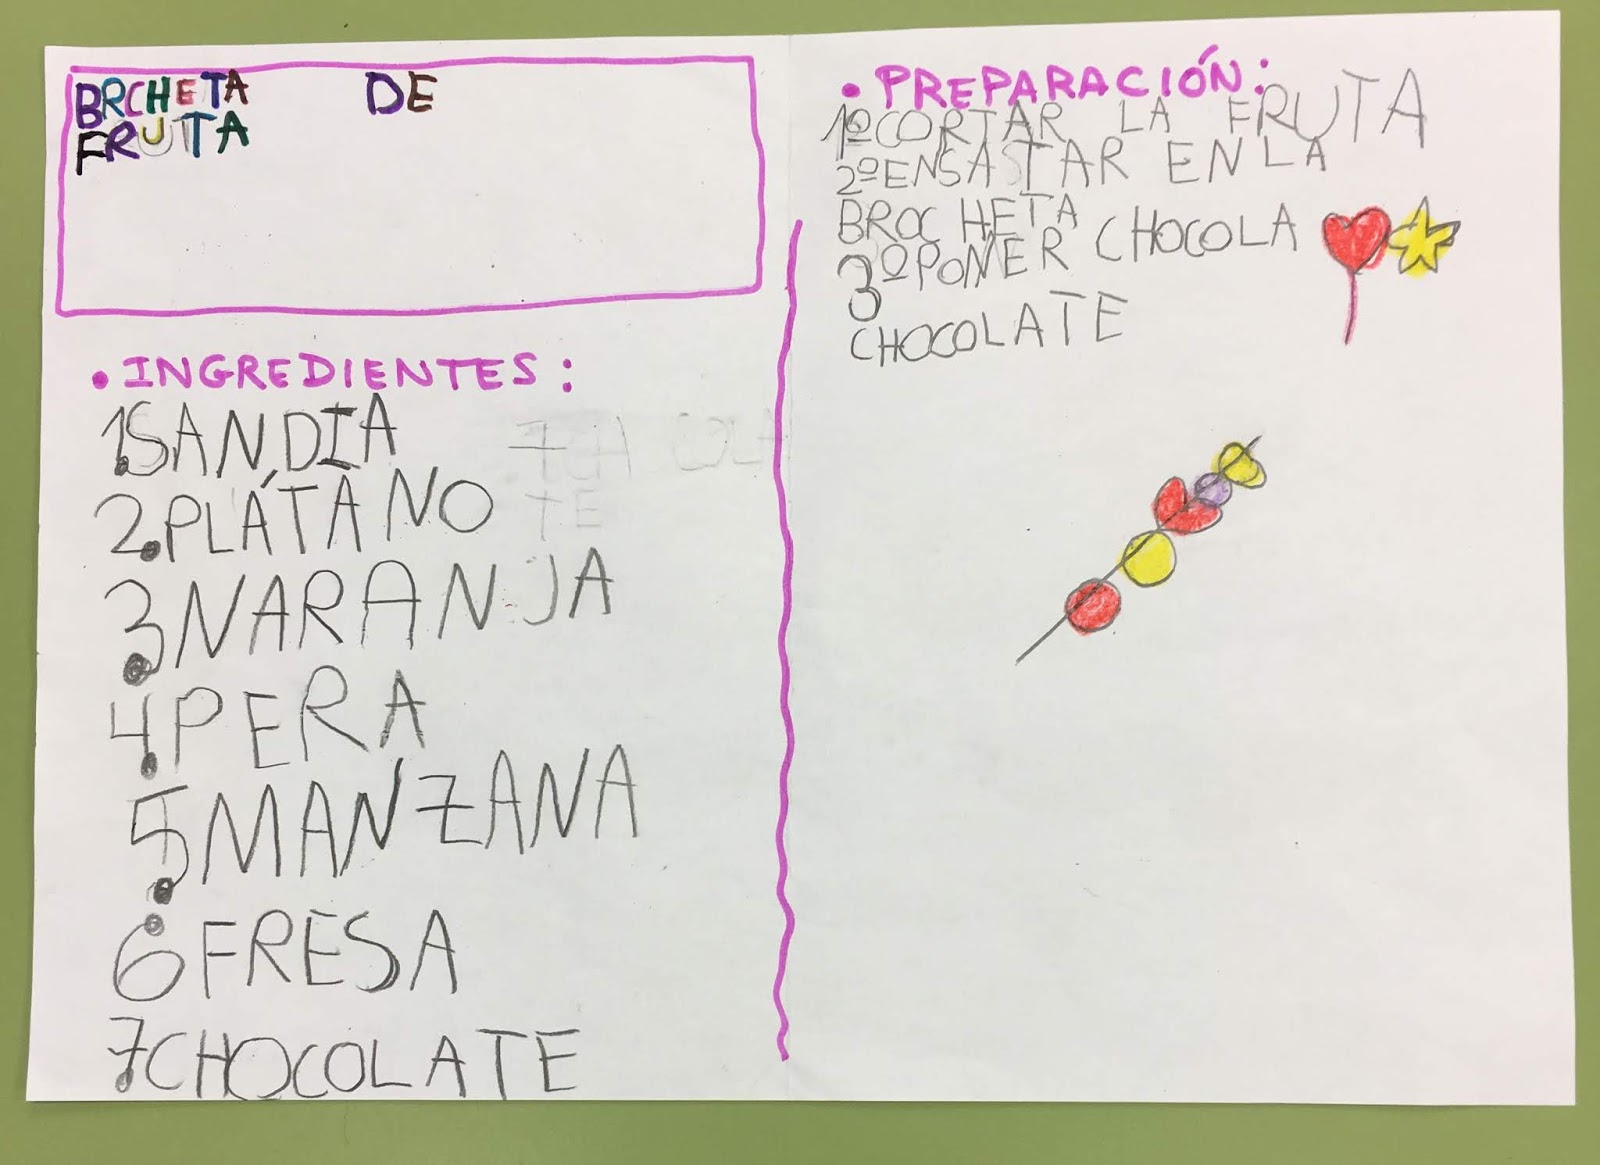 BRCHETA DE
FRUTTA
• INGREDIENTES:
1.SANDIA
2.PLÁTANO
3.NARANJA
4.PERA
5.MANZANA
6.FRESA
7.CHOCOLATE
• PREPARACIÓN:
1ºCORTAR LA FRUTA
2ºENSASTAR EN LA
BROCHETA
3ºPONER CHOCOLA
CHOCOLATE